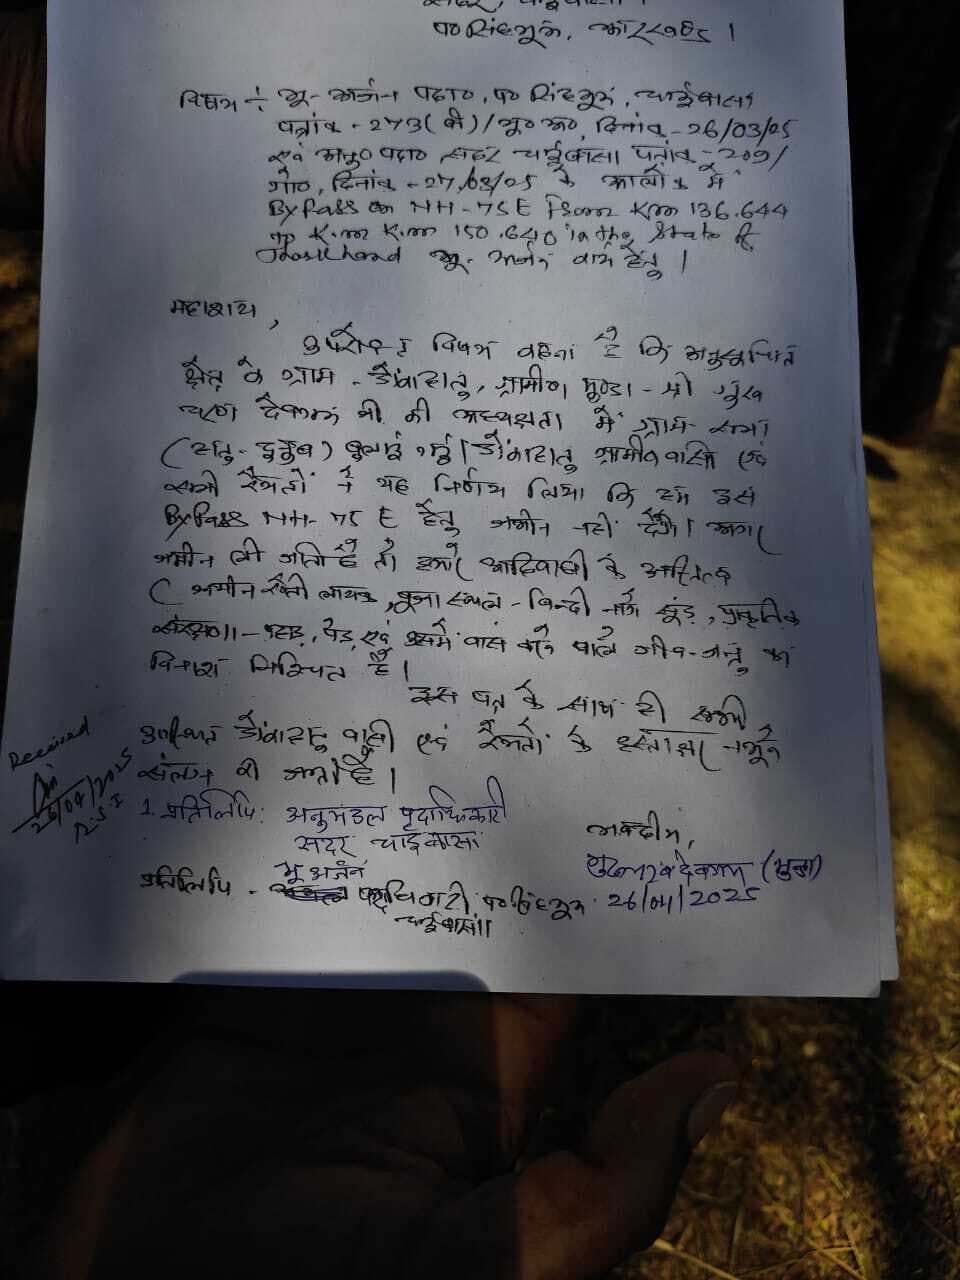 सदर, चाईबासा।
प० सिंहभूम, झारखण्ड।
विषय ÷ भू-अर्जन पदा०, प० सिंहभूम, चाईबासा
पत्रांक - 273(बी)/भू० अ०, दिनांक - 26/03/25
एवं अनु० पदा० सदर चाईबासा पत्रांक - 209/
गो०, दिनांक - 27/03/25 के आलोक में
ByPass on NH-75E From Km 136.644
to K.m K.m 150.640 in the State of
Jharkhand भू-अर्जन वाद हेतु।
महाशय,
उपरोक्त विषय कहना है कि अनुसूचित
क्षेत्र के ग्राम - डोंबासाई, ग्रामीण मुण्डा - श्री
चरण देवगम जी की अध्यक्षता में ग्राम-सभा
बुलाई गई। ग्रामीण वासी एवं
सभी रैयतों ने यह निर्णय लिया कि हम इस
ByPass NH-75E हेतु जमीन नहीं देंगे। अगर
जमीन ली जाती है तो हमारे आदिवासी के अस्तित्व
(जमीन खेती लायक, पूजा स्थल - झुंड, प्राकृतिक
संरक्षण - पहाड़, पेड़ एवं उसमें वास करने वाले जीव-जन्तु का
विनाश निश्चित है।
इस पत्र के साथ ही सभी
उपस्थित वासी एवं रैयतों के हस्ताक्षर नमूने
संलग्न की जाती है।
Received
26/04/2025
1. प्रतिलिपि: अनुमंडल पदाधिकारी
सदर चाईबासा
भवदीय,
देवगम (मुण्डा)
26/04/2025
भू अर्जन
प्रतिलिपि - पदाधिकारी, प० सिंहभूम
चाईबासा।